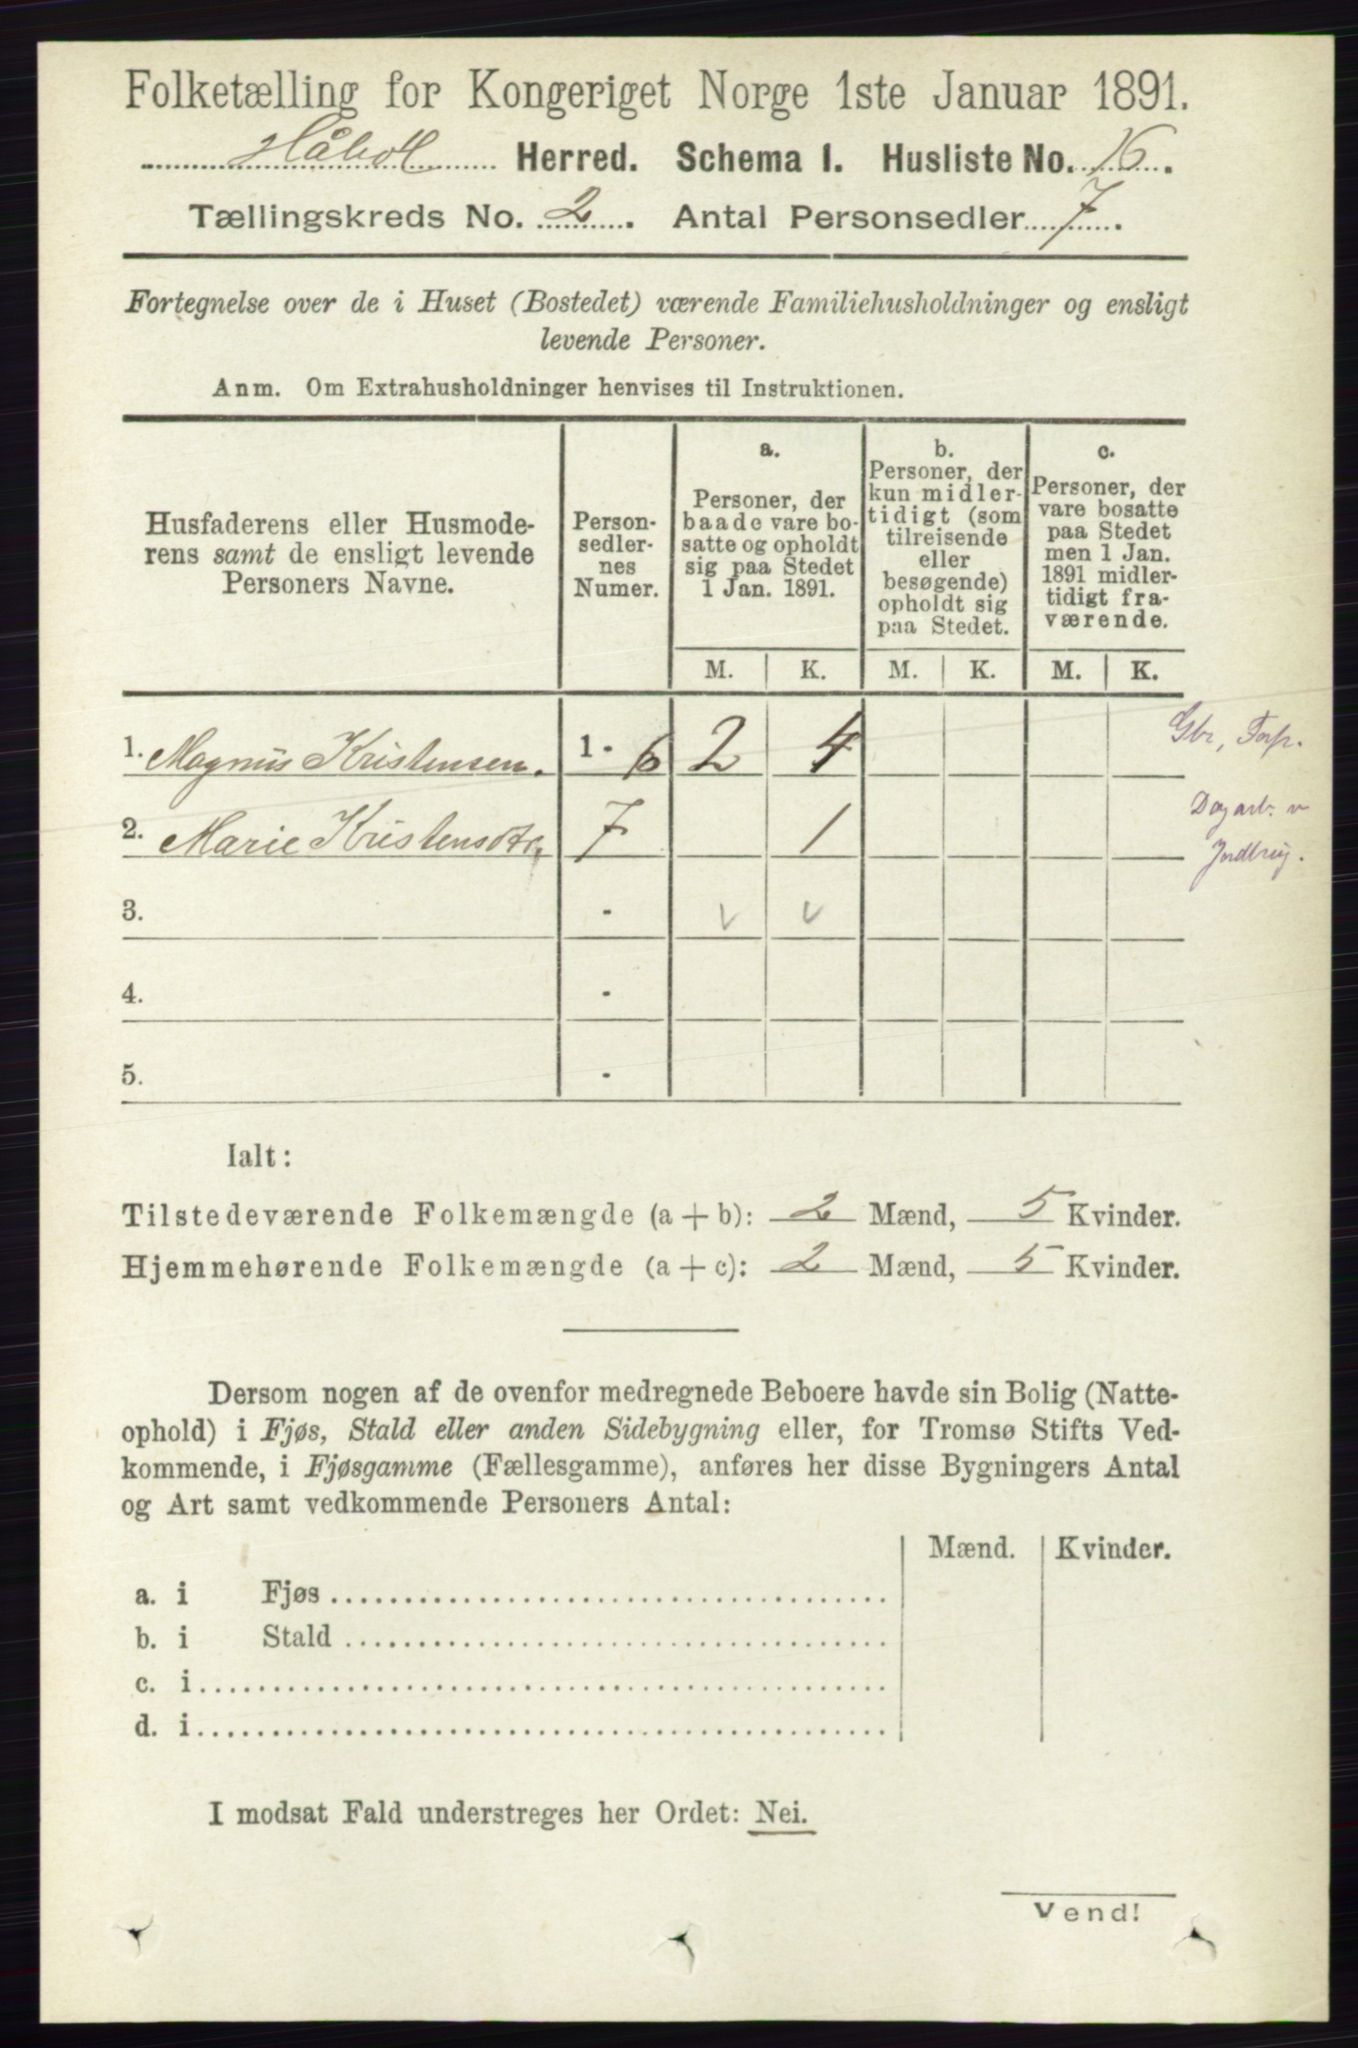 Folketælling for Kongeriget Norge 1ste Januar 1891.
Håbol Herred. Schema I. Husliste No. 16.
Tællingskreds No. 2. Antal Personsedler 7.
Fortegnelse over de i Huset (Bostedet) værende Familiehusholdninger og ensligt
levende Personer.
Anm. Om Extrahusholdninger henvises til Instruktionen.
Husfaderens eller Husmode-
rens samt de ensligt levende
Personers Navne.
Person-
sedler-
nes
Numer.
a.
Personer, der
baade vare bo-
satte og opholdt
sig paa Stedet
1 Jan. 1891.
b.
Personer, der
kun midler-
tidigt (som
tilreisende
eller
besøgende)
opholdt sig
paa Stedet.
c.
Personer, der
vare bosatte
paa Stedet
men 1 Jan.
1891 midler-
tidigt fra-
værende.
M. K. M. K. M. K.
1. Magnus Kristensen. 1 - 6 2 4 Gbr,
2. Marie Kristensdtr. 7 1 Dagarb. v
Jordbrug.
3. - v v
4. -
5. -
Ialt:
Tilstedeværende Folkemængde (a + b): 2 Mænd, 5 Kvinder.
Hjemmehørende Folkemængde (a + c): 2 Mænd, 5 Kvinder.
Dersom nogen af de ovenfor medregnede Beboere havde sin Bolig (Natte-
ophold) i Fjøs, Stald eller anden Sidebygning eller, for Tromsø Stifts Ved-
kommende, i Fjøsgamme (Fællesgamme), anføres her disse Bygningers Antal
og Art samt vedkommende Personers Antal:
Mænd. Kvinder.
a. i Fjøs
b. i Stald
c. i
d. i
I modsat Fald understreges her Ordet: Nei.
Vend!